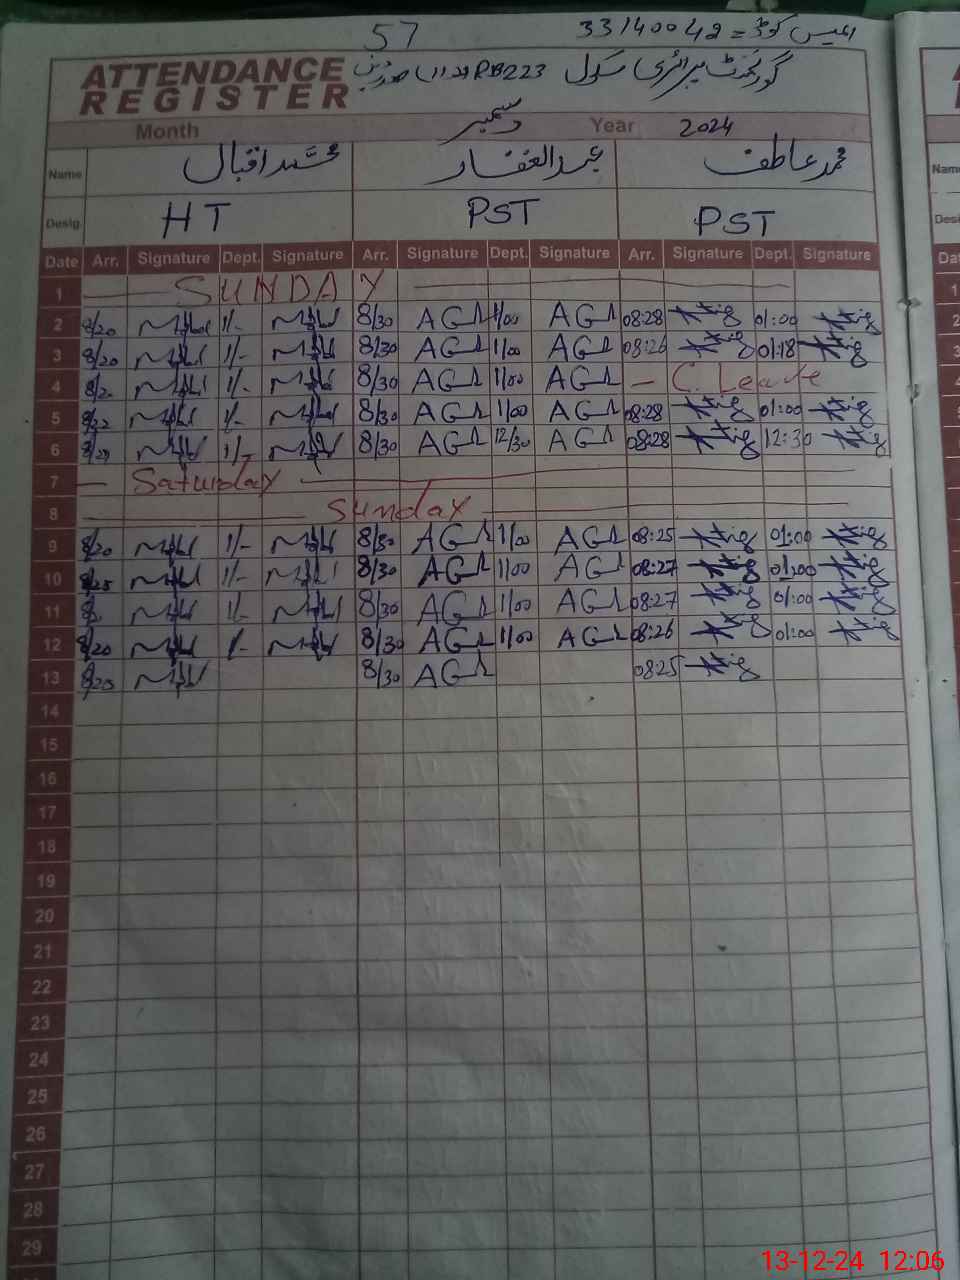 57 ایمیس کوڈ = 33140048
ATTENDANCE REGISTER
گورنمنٹ پرائمری سکول PB223
Month دسمبر Year 2024
Name محمد اقبال عبدالغفار محمد عاطف
Desig. HT PST PST
Date Arr. Signature Dept. Signature Arr. Signature Dept. Signature Arr. Signature Dept. Signature
1 SUNDAY
2 8/20 1/- 8/30 AGh 1/00 AGh 08:28 01:00
3 8/20 1/- 8/30 AGh 1/00 AGh 08:26 01:18
4 1/- 8/30 AGh 1/00 AGh — C. Leave
5 1/- 8/30 AGh 1/00 AGh 08:28 01:00
6 1/- 8/30 AGh 12/30 AGh 08:28 12:30
7 Saturday
8 Sunday
9 8/20 1/- 8/30 AGh 1/00 AGh 08:25 01:00
10 8/25 1/- 8/30 AGh 1/00 AGh 08:27 01:00
11 1/- 8/30 AGh 1/00 AGh 08:27 01:00
12 8/20 1/- 8/30 AGh 1/00 AGh 08:26 01:00
13 8/20 8/30 AGh 08:25
14
15
16
17
18
19
20
21
22
23
24
25
26
27
28
29
13-12-24 12:06